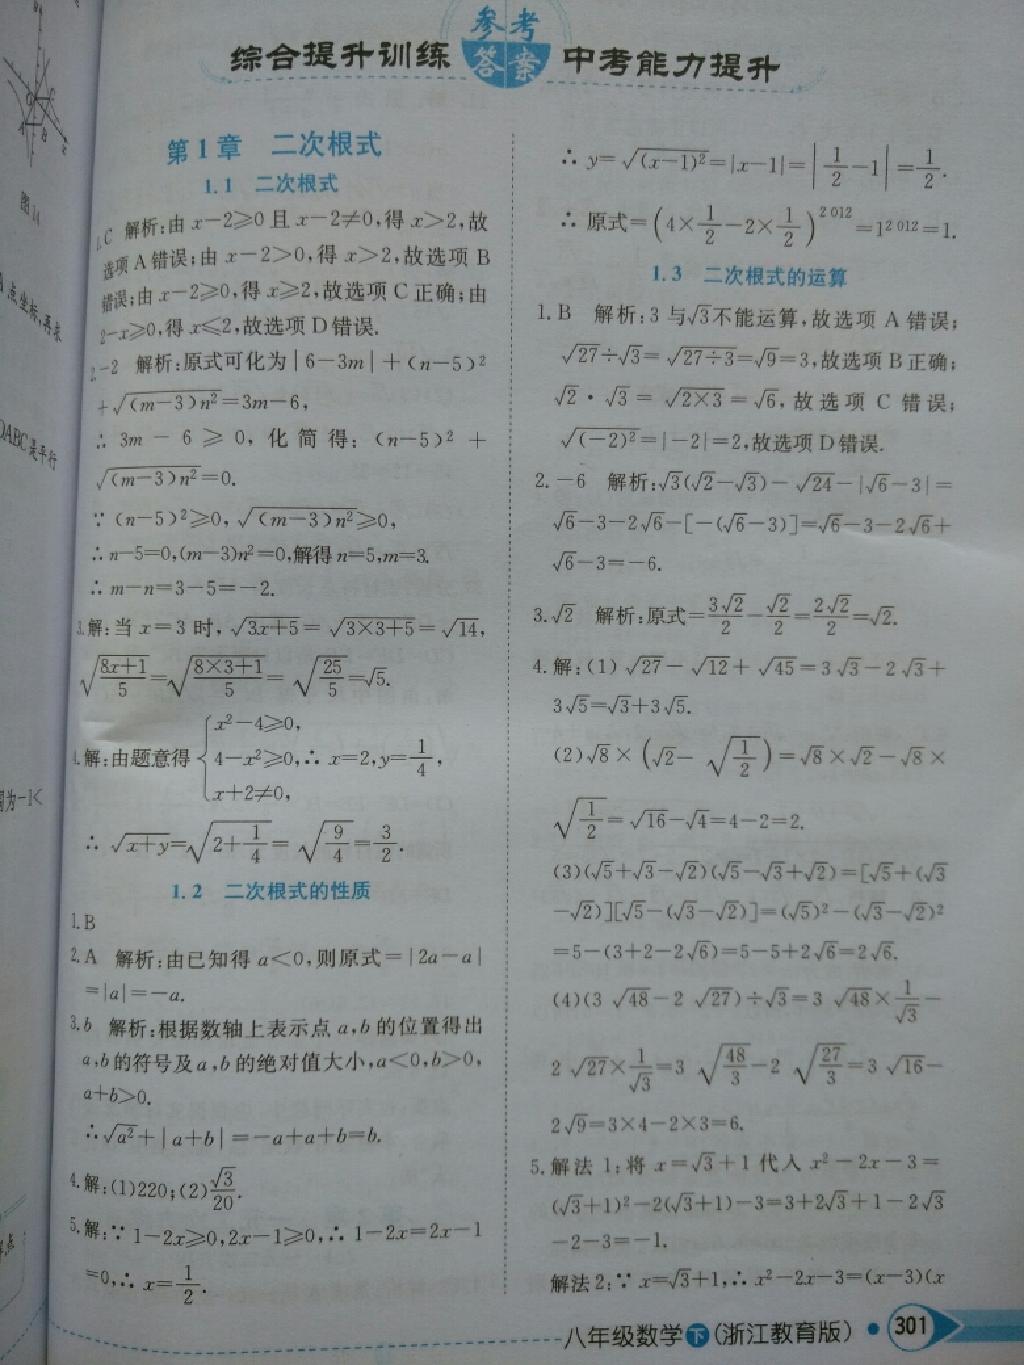 图14
点坐标,再求
OABC是平行
参考
答案
综合提升训练
中考能力提升
第1章 二次根式
1.1 二次根式
1.C 解析:由x-2≥0且x-2≠0,得x>2,故
选项A错误;由x-2>0,得x>2,故选项B
错误;由x-2≥0,得x≥2,故选项C正确;由
2-x≥0,得x≤2,故选项D错误.
2.-2 解析:原式可化为|6-3m|+(n-5)²
+√((m-3)n²)=3m-6,
∴3m-6≥0,化简得:(n-5)²+
√((m-3)n²)=0.
∵(n-5)²≥0,√((m-3)n²)≥0,
∴n-5=0,(m-3)n²=0,解得n=5,m=3.
∴m-n=3-5=-2.
3.解:当x=3时,√(3x+5)=√(3×3+5)=√14,
√((8x+1)/5)=√((8×3+1)/5)=√(25/5)=√5.
4.解:由题意得{x²-4≥0, 4-x²≥0, x+2≠0,∴x=2,y=1/4,
∴√(x+y)=√(2+1/4)=√(9/4)=3/2.
1.2 二次根式的性质
1.B
2.A 解析:由已知得a<0,则原式=|2a-a|
=|a|=-a.
3.b 解析:根据数轴上表示点a,b的位置得出
a,b的符号及a,b的绝对值大小,a<0,b>0,
a+b>0.
∴√(a²)+|a+b|=-a+a+b=b.
4.解:(1)220;(2)√3/20.
5.解:∵1-2x≥0,2x-1≥0,∴1-2x=2x-1
=0,∴x=1/2.
∴y=√((x-1)²)=|x-1|=|1/2-1|=1/2.
∴原式=(4×1/2-2×1/2)²⁰¹²=1²⁰¹²=1.
1.3 二次根式的运算
1.B 解析:3与√3不能运算,故选项A错误;
√27÷√3=√(27÷3)=√9=3,故选项B正确;
√2·√3=√(2×3)=√6,故选项C错误;
√((-2)²)=|-2|=2,故选项D错误.
2.-6 解析:√3(√2-√3)-√24-|√6-3|=
√6-3-2√6-[-(√6-3)]=√6-3-2√6+
√6-3=-6.
3.√2 解析:原式=3√2/2-√2/2=2√2/2=√2.
4.解:(1)√27-√12+√45=3√3-2√3+
3√5=√3+3√5.
(2)√8×(√2-√(1/2))=√8×√2-√8×
√(1/2)=√16-√4=4-2=2.
(3)(√5+√3-√2)(√5-√3+√2)=[√5+(√3
-√2)][√5-(√3-√2)]=(√5)²-(√3-√2)²
=5-(3+2-2√6)=5-5+2√6=2√6.
(4)(3√48-2√27)÷√3=3√48×1/√3-
2√27×1/√3=3√(48/3)-2√(27/3)=3√16-
2√9=3×4-2×3=6.
5.解法1:将x=√3+1代入x²-2x-3=
(√3+1)²-2(√3+1)-3=3+2√3+1-2√3
-2-3=-1.
解法2:∵x=√3+1,∴x²-2x-3=(x-3)(x
八年级数学下(浙江教育版) 301